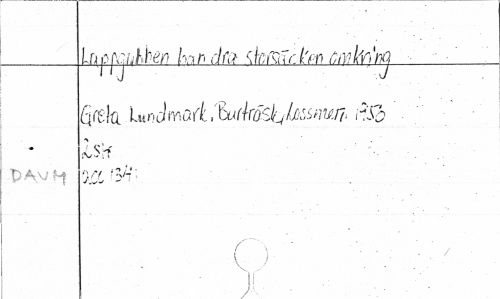 Lappgubben kan dra storsäcken omkring
Greta Lundmark, Burträsk, Lossmen. 1953
2 s 4:
DAUM acc 1341